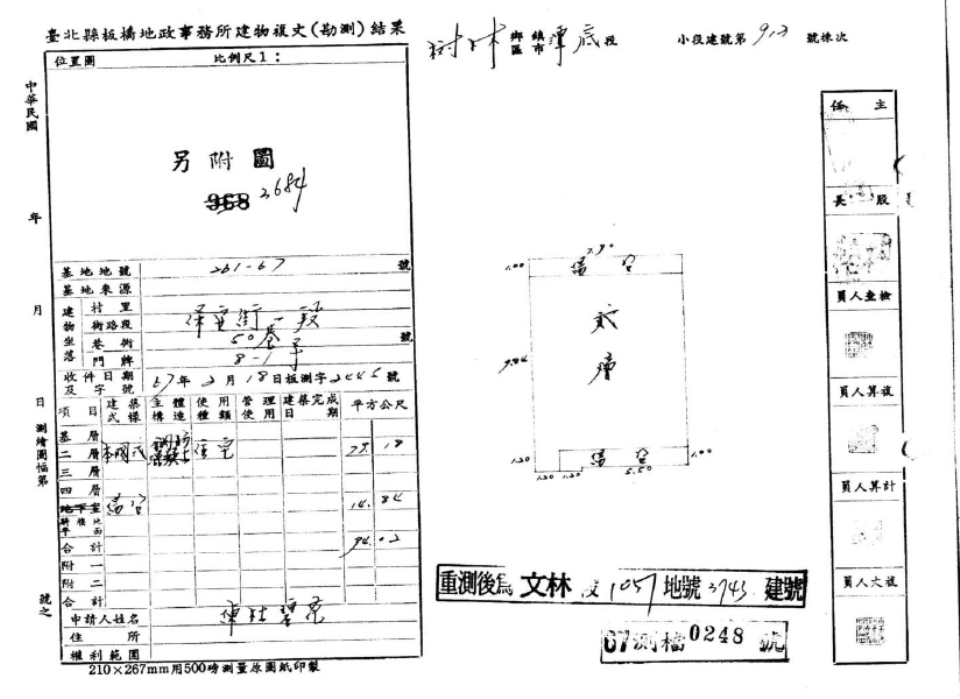 臺北縣板橋地政事務所建物複丈(勘測)結果
樹林 鄉鎮區市 潭底段 小段建號第 913 號棟次
位置圖 比例尺1:
中華民國 年 月 日測繪圖幅第 號之
另附圖
2684
基地地號 261-67 號
基地來源
建物坐落
村里
街路段 保安街一段
巷街 50巷 號
門牌 8-1号
收件日期及字號 67年 2月18日板測字2445號
項目 建築式樣 主體構造 使用種類 管理使用 建築完成日期 平方公尺
基層
二層 本國式 住宅 79.18
三層
四層
地下室 陽台 14.84
騎樓地平面
合計 94.02
附一
附二
合計
申請人姓名
住所
權利範圍
210×267mm用500磅測量原圖紙印製
1.00
7.90
陽台
9.84
貳層
1.20
陽台
1.00
1.20 1.20 5.50
主任
股長
檢查人員
複算人員
計算人員
複丈人員
重測後為 文林 段 1057 地號 3743 建號
67測檔 0248 號